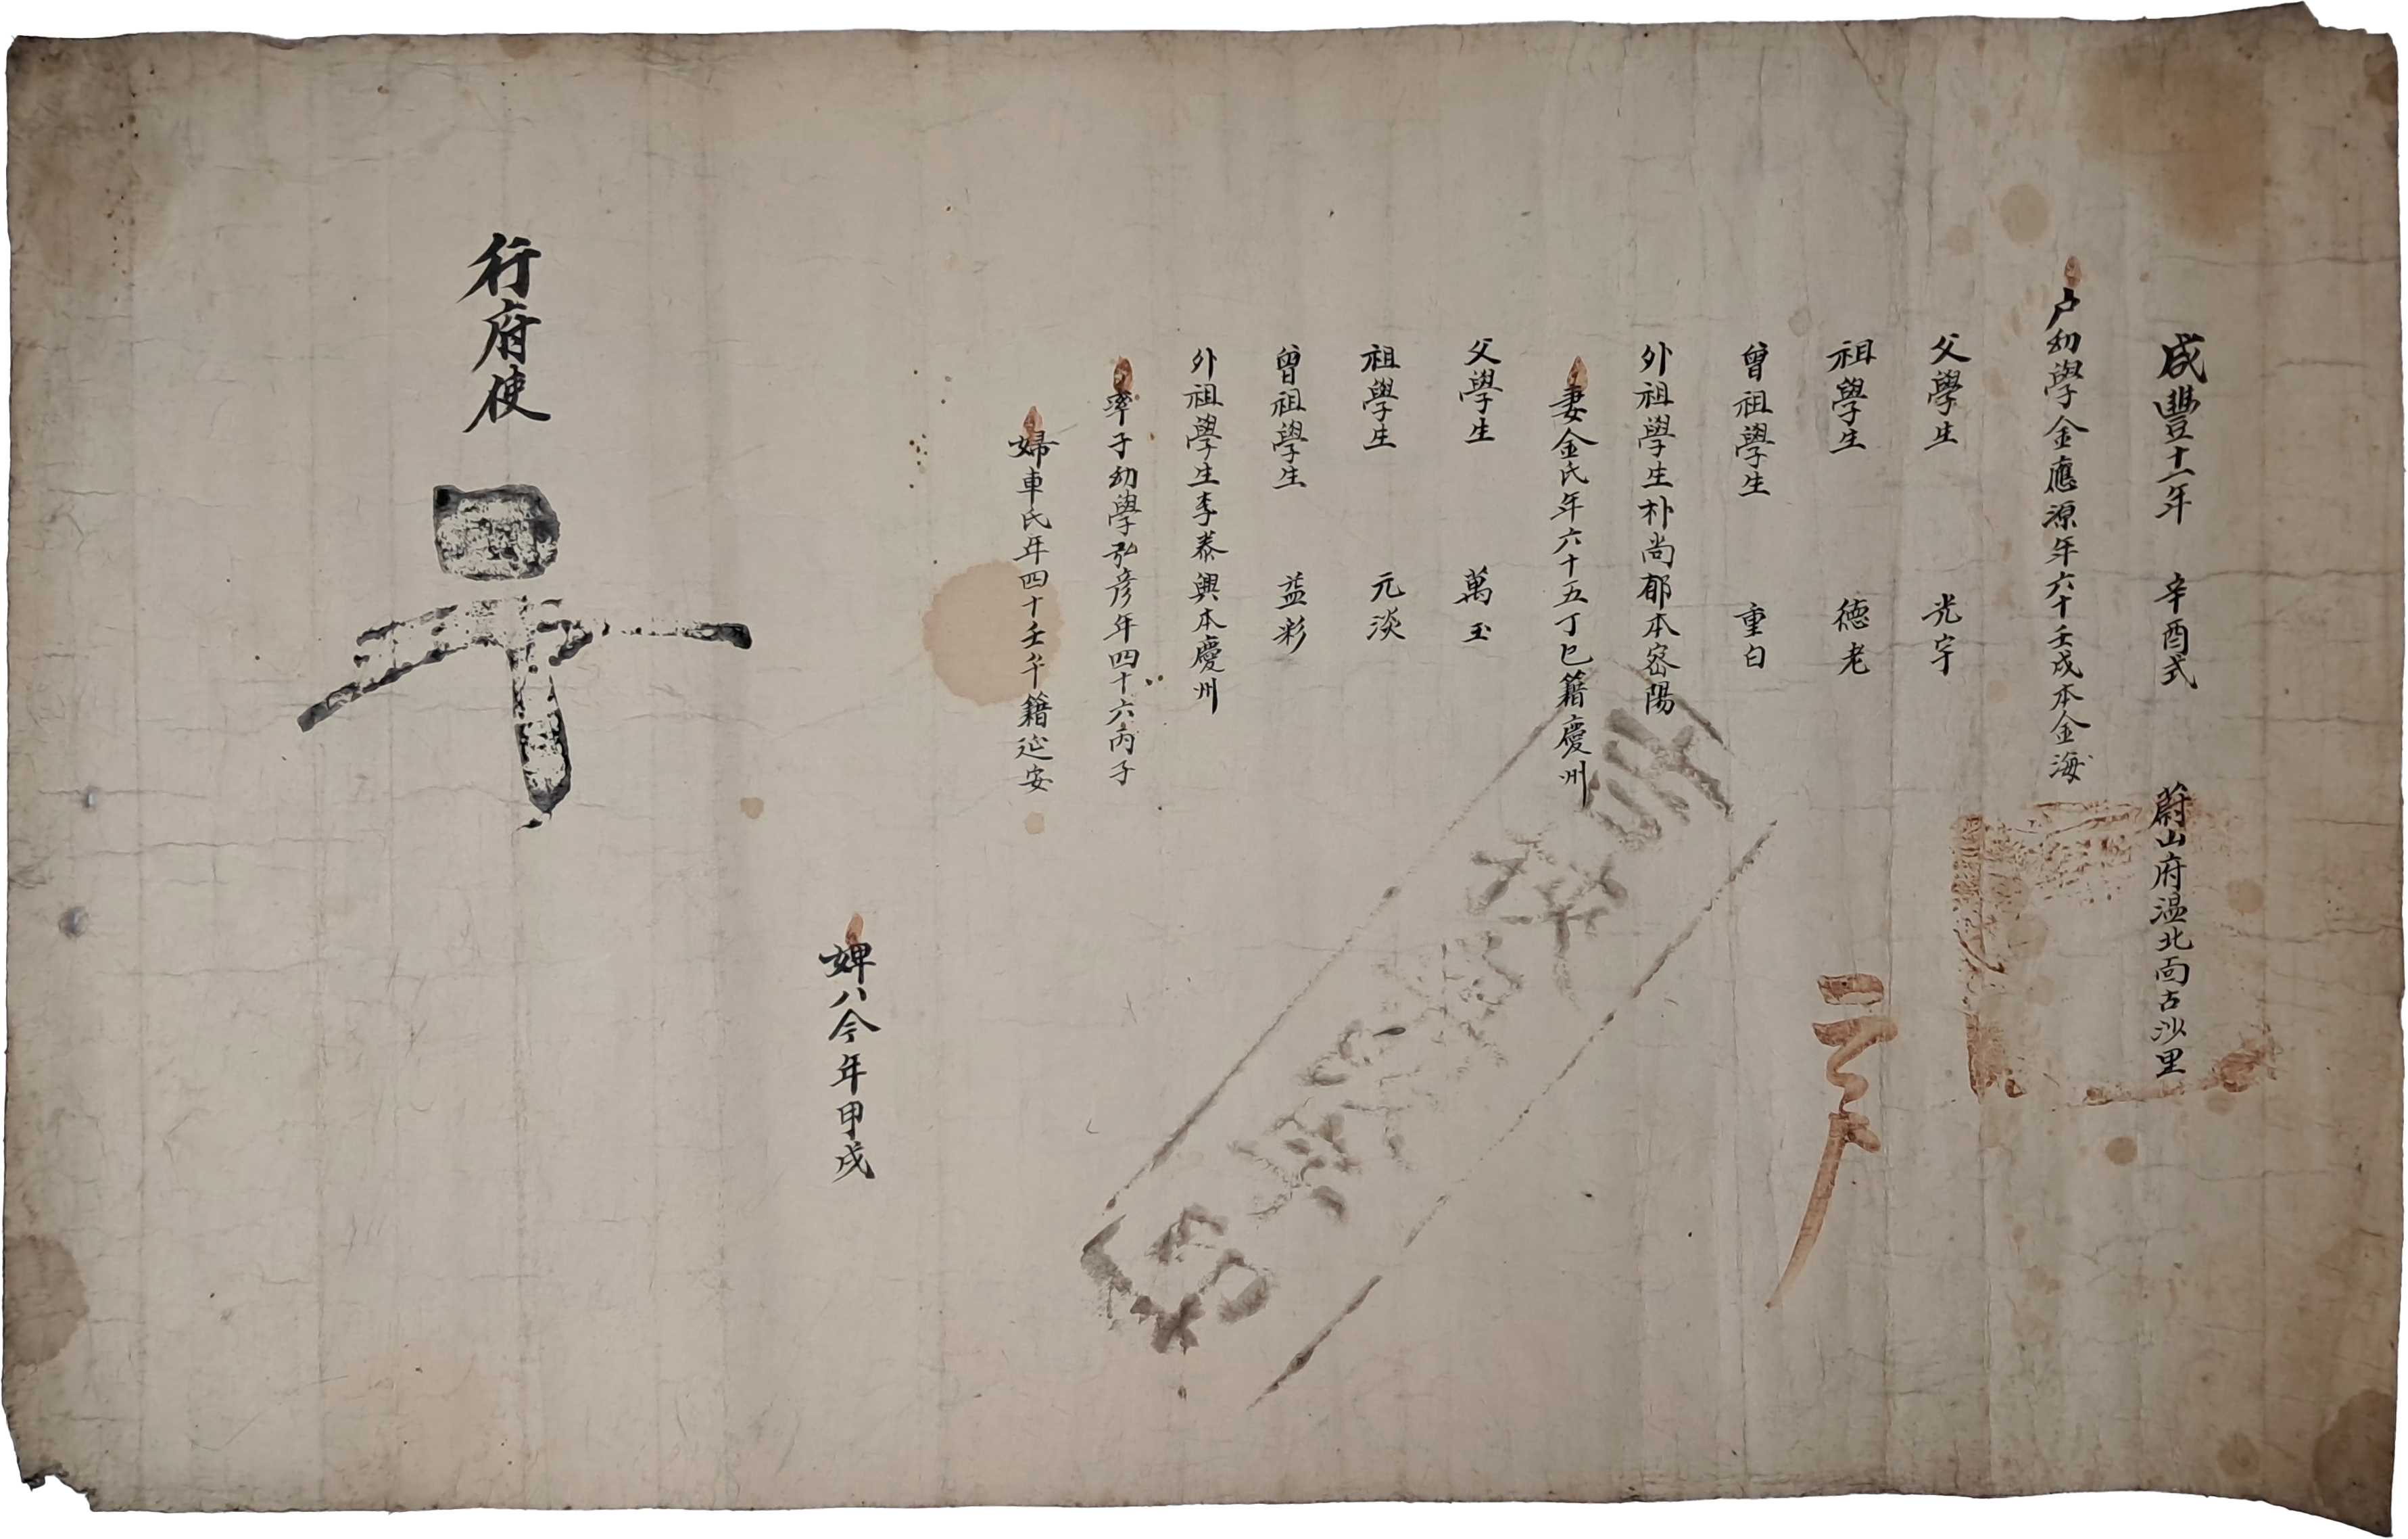 咸豐十一年 辛酉式 蔚山府温北面古沙里
户幼學金應源年六十壬戌本金海
父學生 光宇
祖學生 德老
曾祖學生 重白
外祖學生朴尚郁本密陽
妻金氏年六十五丁巳籍慶州
父學生 萬玉
祖學生 元淡
曾祖學生 益彩
外祖學生李泰興本慶州
率子幼學弘彦年四十六丙子
婦車氏年四十壬午籍延安
婢八今年甲戌
行府使
二戶